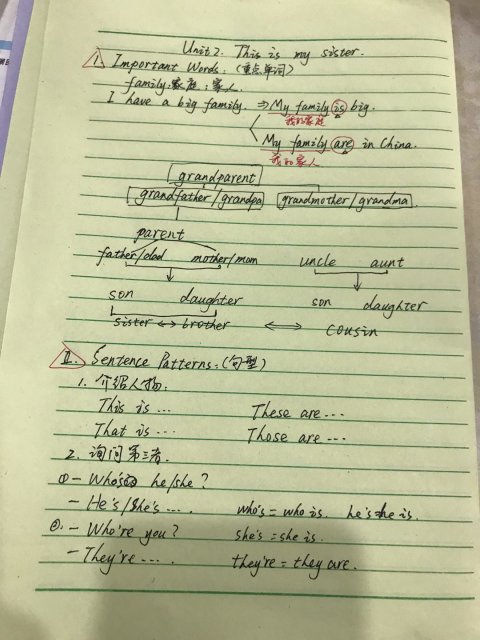 Unit 2. This is my sister.
I. Important Words: (重点单词)
family: 家庭; 家人.
I have a big family. ⇒ My family is big.
我的家庭
My family are in China.
我的家人
grandparent
grandfather/grandpa grandmother/grandma
parent
father/dad mother/mom uncle aunt
son daughter son daughter
sister ↔ brother ⟺ cousin
II. Sentence Patterns: (句型)
1. 介绍人物:
This is ... These are ...
That is ... Those are ...
2. 询问第三者.
① - Who's he/she?
- He's/She's .... who's = who is. he's = he is.
②. - Who're you? she's = she is.
- They're .... they're = they are.